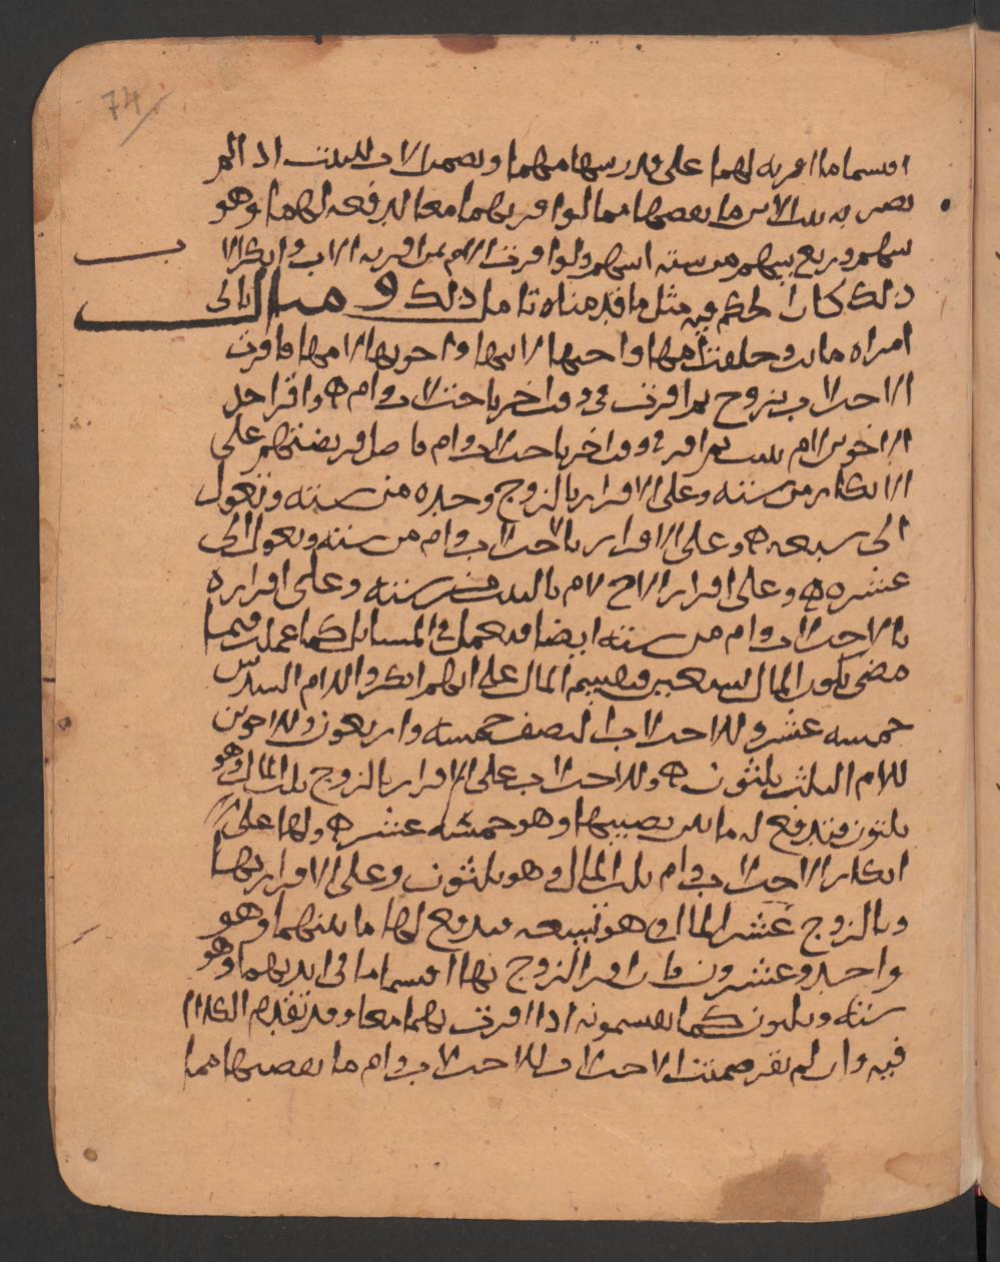 74
اقتسما ما اقر به لهما على قدر سهامهما وتضمن الاب للبنت اذا لم
تضر به بنت الابن ما بعضها مما لو اقر بهما معا لدفعه لهما وهو
سهم وربع سهم من ستة اسهم ولو اقرت الام بمن اقر به الاب وانكر الا
ذلك كان الحكم فيه مثل ما قدمناه تامل ذلك ومثال ثانى
امراه ماتت وخلفت امها واختها لابيها واخويها لامها فاقرت
الاخت لاب بزوج ثم اقرت فى وقت اخر باخت لاب وام واقر احد
الاخوين لام ببنت ثم اقر فى وقت اخر باخت لاب وام فاصل فريضتهم على
الانكار من ستة وعلى الاقرار بالزوج وحده من ستة وتعول
الى سبعة وعلى الاقرار بالاخت لاب وام من ستة وتعول الى
عشرة وعلى اقرار الاخ لام بالبنت من ستة وعلى اقراره
بالاخت لاب وام من ستة ايضا فتعمل فى المسايل كما عملت فيما
مضى يكون المال تسعين فيقسم المال على انهم انكروا للام السدس
خمسة عشر وللاخت لاب النصف خمسة واربعون وللاخوين
للام الثلث ثلثون وللاخت لاب على الاقرار بالزوج ثلث المال وهو
ثلثون فتدفع له ما بين نصيبها وهو خمسة عشر ولها على
انكار الاخت لاب وام ثلث المال وهو ثلثون وعلى الاقرار بها
وبالزوج عشر المال وهو تسعه فيدفع لها ما بينهما وهو
واحد وعشرون فان اقر الزوج بها اقتسما ما فى ايديهما وهو
ستة وثلثون كما يقسمونه اذا اقرت بهما معا وقد تقدم الكلام
فيه وان لم يقر ضمنت الاخت لاب للاخت لاب وام ما بعضها مما